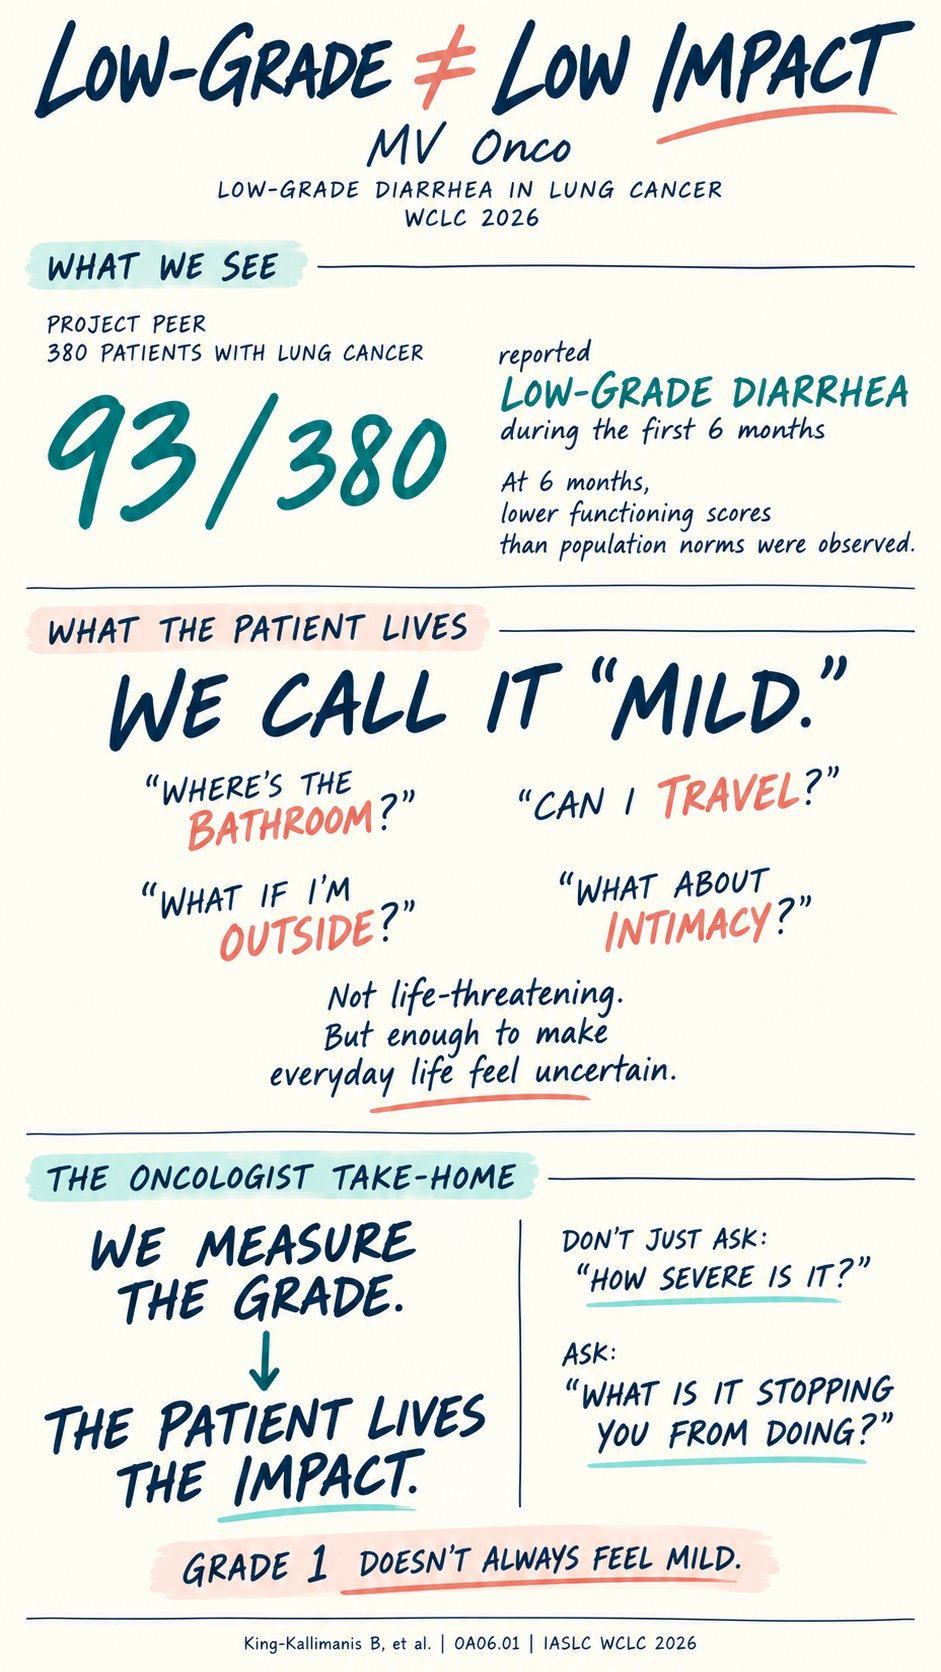 LOW-GRADE ≠ LOW IMPACT
MV Onco
LOW-GRADE DIARRHEA IN LUNG CANCER
WCLC 2026
WHAT WE SEE
PROJECT PEER
380 PATIENTS WITH LUNG CANCER
93/380
reported
LOW-GRADE DIARRHEA
during the first 6 months
At 6 months,
lower functioning scores
than population norms were observed.
WHAT THE PATIENT LIVES
WE CALL IT “MILD.”
“WHERE’S THE
BATHROOM?”
“CAN I TRAVEL?”
“WHAT IF I’M
OUTSIDE?”
“WHAT ABOUT
INTIMACY?”
Not life-threatening.
But enough to make
everyday life feel uncertain.
THE ONCOLOGIST TAKE-HOME
WE MEASURE
THE GRADE.
↓
THE PATIENT LIVES
THE IMPACT.
DON’T JUST ASK:
“HOW SEVERE IS IT?”
ASK:
“WHAT IS IT STOPPING
YOU FROM DOING?”
GRADE 1 DOESN’T ALWAYS FEEL MILD.
King-Kallimanis B, et al. | OA06.01 | IASLC WCLC 2026